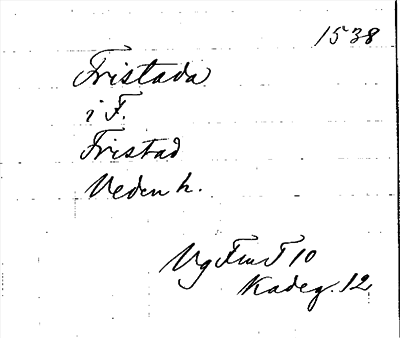 1538
Fristada
i F.
Fristad
Veden h.
Vg Fru T 10
Kadeg. 12